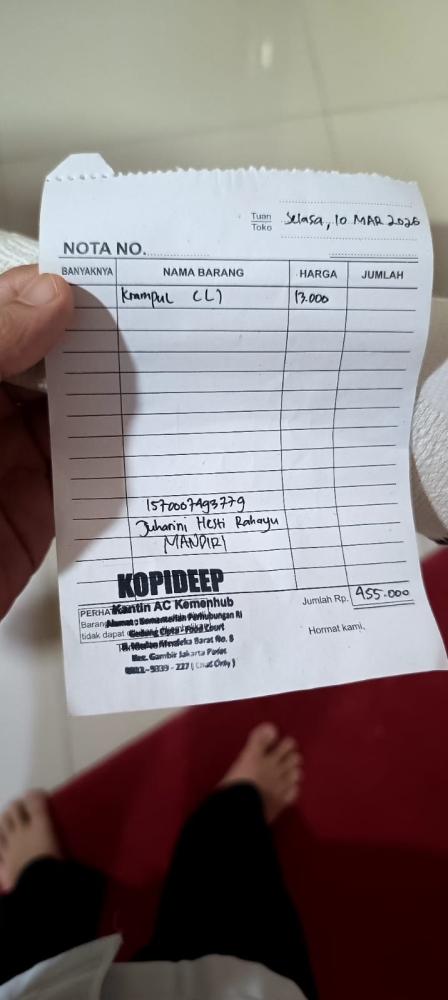 Tuan
Toko
Selasa, 10 MAR 2026
NOTA NO.
BANYAKNYA NAMA BARANG HARGA JUMLAH
Krampul (L) 13.000
1570007493779
Juharini Hesti Rahayu
MANDIRI
KOPIDEEP
PERHA
Kantin AC Kemenhub
Barang Alamat : Kementerian Perhubungan RI
tidak dapat Gedung Cipta - Food Court
Jl. Medan Merdeka Barat No. 8
Kec. Gambir Jakarta Pusat
9339 - 227 ( Chat Only )
Jumlah Rp. 455.000
Hormat kami,